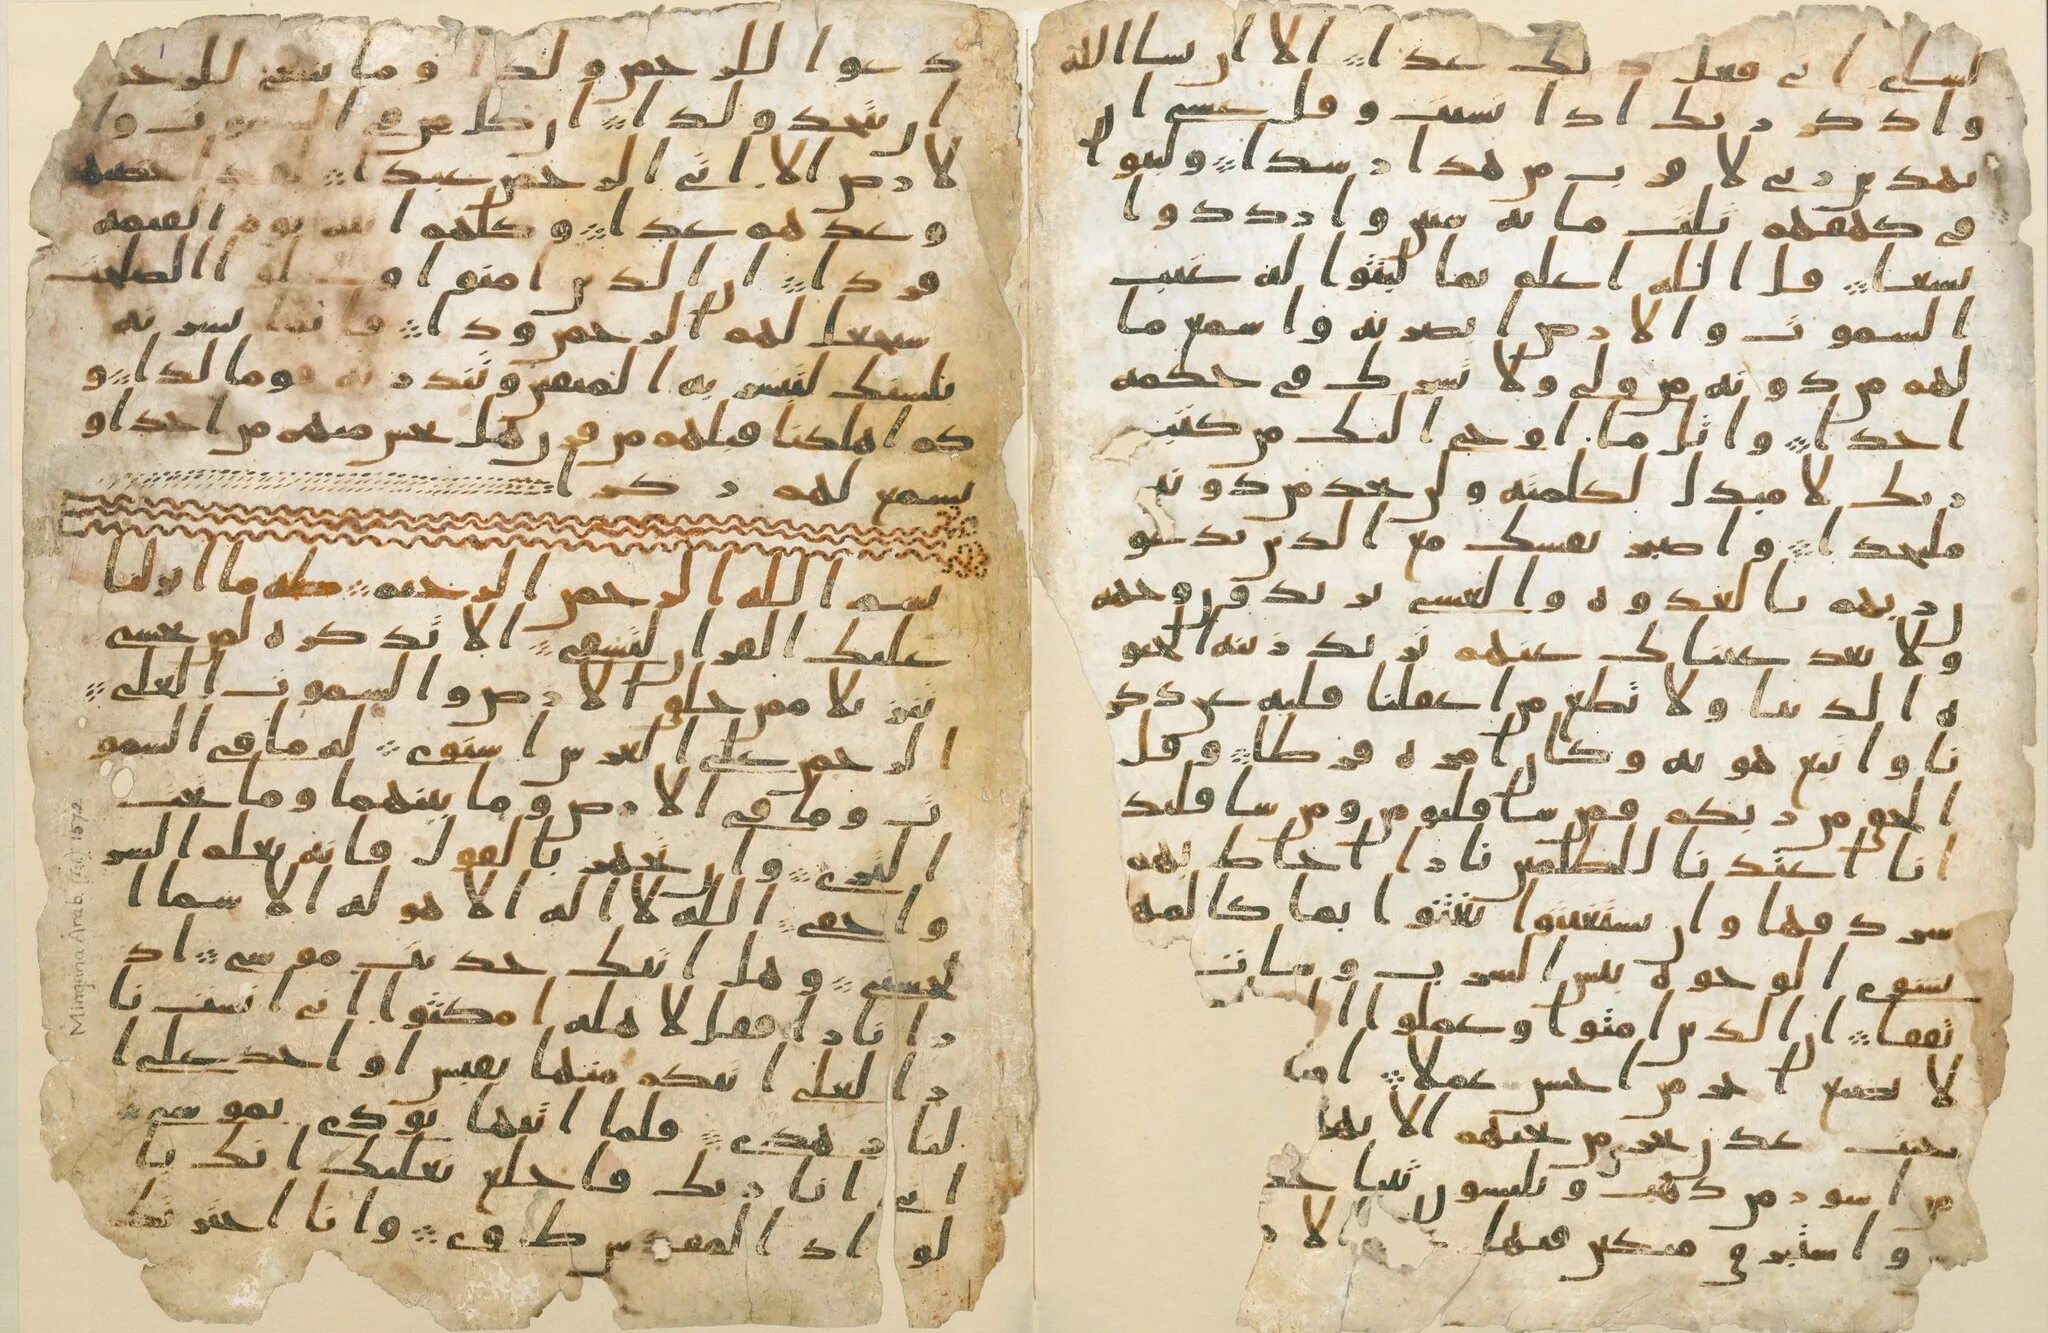 لساى انى فعل ذلك غدا الا ان يسا الله
واذكر ربك اذا نسيت وقل عسى ان
يهدين ربى لاقرب من هذا رشدا ولبثوا
فى كهفهم ثلث مائه سنين وازددوا
تسعا قل الله اعلم بما لبثوا له غيب
السموت والارض ابصر به واسمع ما
لهم من دونه من ولى ولا يشرك فى حكمه
احدا واتل ما اوحى اليك من كتب
ربك لا مبدل لكلمته ولن تجد من دونه
ملتحدا واصبر نفسك مع الذين يدعو
ن ربهم بالغدوه والعشى يريدون وجهه
ولا تعد عيناك عنهم تريد زينه الحيو
ه الدنيا ولا تطع من اغفلنا قلبه عن ذكر
نا واتبع هويه وكان امره فرطا وقل
الحق من ربكم فمن شا فليومن ومن شا فليكفر
انا اعتدنا للظلمين نارا احاط بهم
سردقها وان يستغيثوا يغثوا بما كالمهل
يشوى الوجوه بئس الشرب وسات
تفقا ان الذين امنوا وعملوا ا
لا نضيع اجر من احسن عملا او
جنت عدن تجرى من تحتهم الانهر
من اسور من ذهب ويلبسون ثيابا خضر
واستبرق متكين فيها الار
دعوا للرحمن ولدا وما ينبغى للرحمن
ان يتخذ ولدا ان كل من فى السموت وا
لارض الا اتى الرحمن عبدا لقد احصيهم
وعدهم عدا وكلهم اتيه يوم القيمه
فردا ان الذين امنوا وعملوا الصلحت
سيجعل لهم الرحمن ودا فانما يسرنه
بلسنك لتبشر به المتقين وتنذر به قوما لدا و
كم اهلكنا قبلهم من قرن هل تحس منهم من احد او
تسمع لهم ركزا
بسم الله الرحمن الرحيم طه ما انزلنا
عليك القران لتشقى الا تذكره لمن يخشى
تنزيلا ممن خلق الارض والسموت العلى
الرحمن على العرش استوى له ما فى السمو
ت وما فى الارض وما بينهما وما تحت
الثرى وان تجهر بالقول فانه يعلم السر
واخفى الله لا اله الا هو له الاسما ا
لحسنى وهل اتيك حديث موسى اذ
را نارا فقل لاهله امكثوا انى انست نا
را لعلى اتيكم منها بقبس او اجد على ا
لنار هدى فلما اتيها نودى يموسى
انى انا ربك فاخلع نعليك انك با
لواد المقدس طوى وانا اخترتك
Mingana Arab. (Isl) 1572